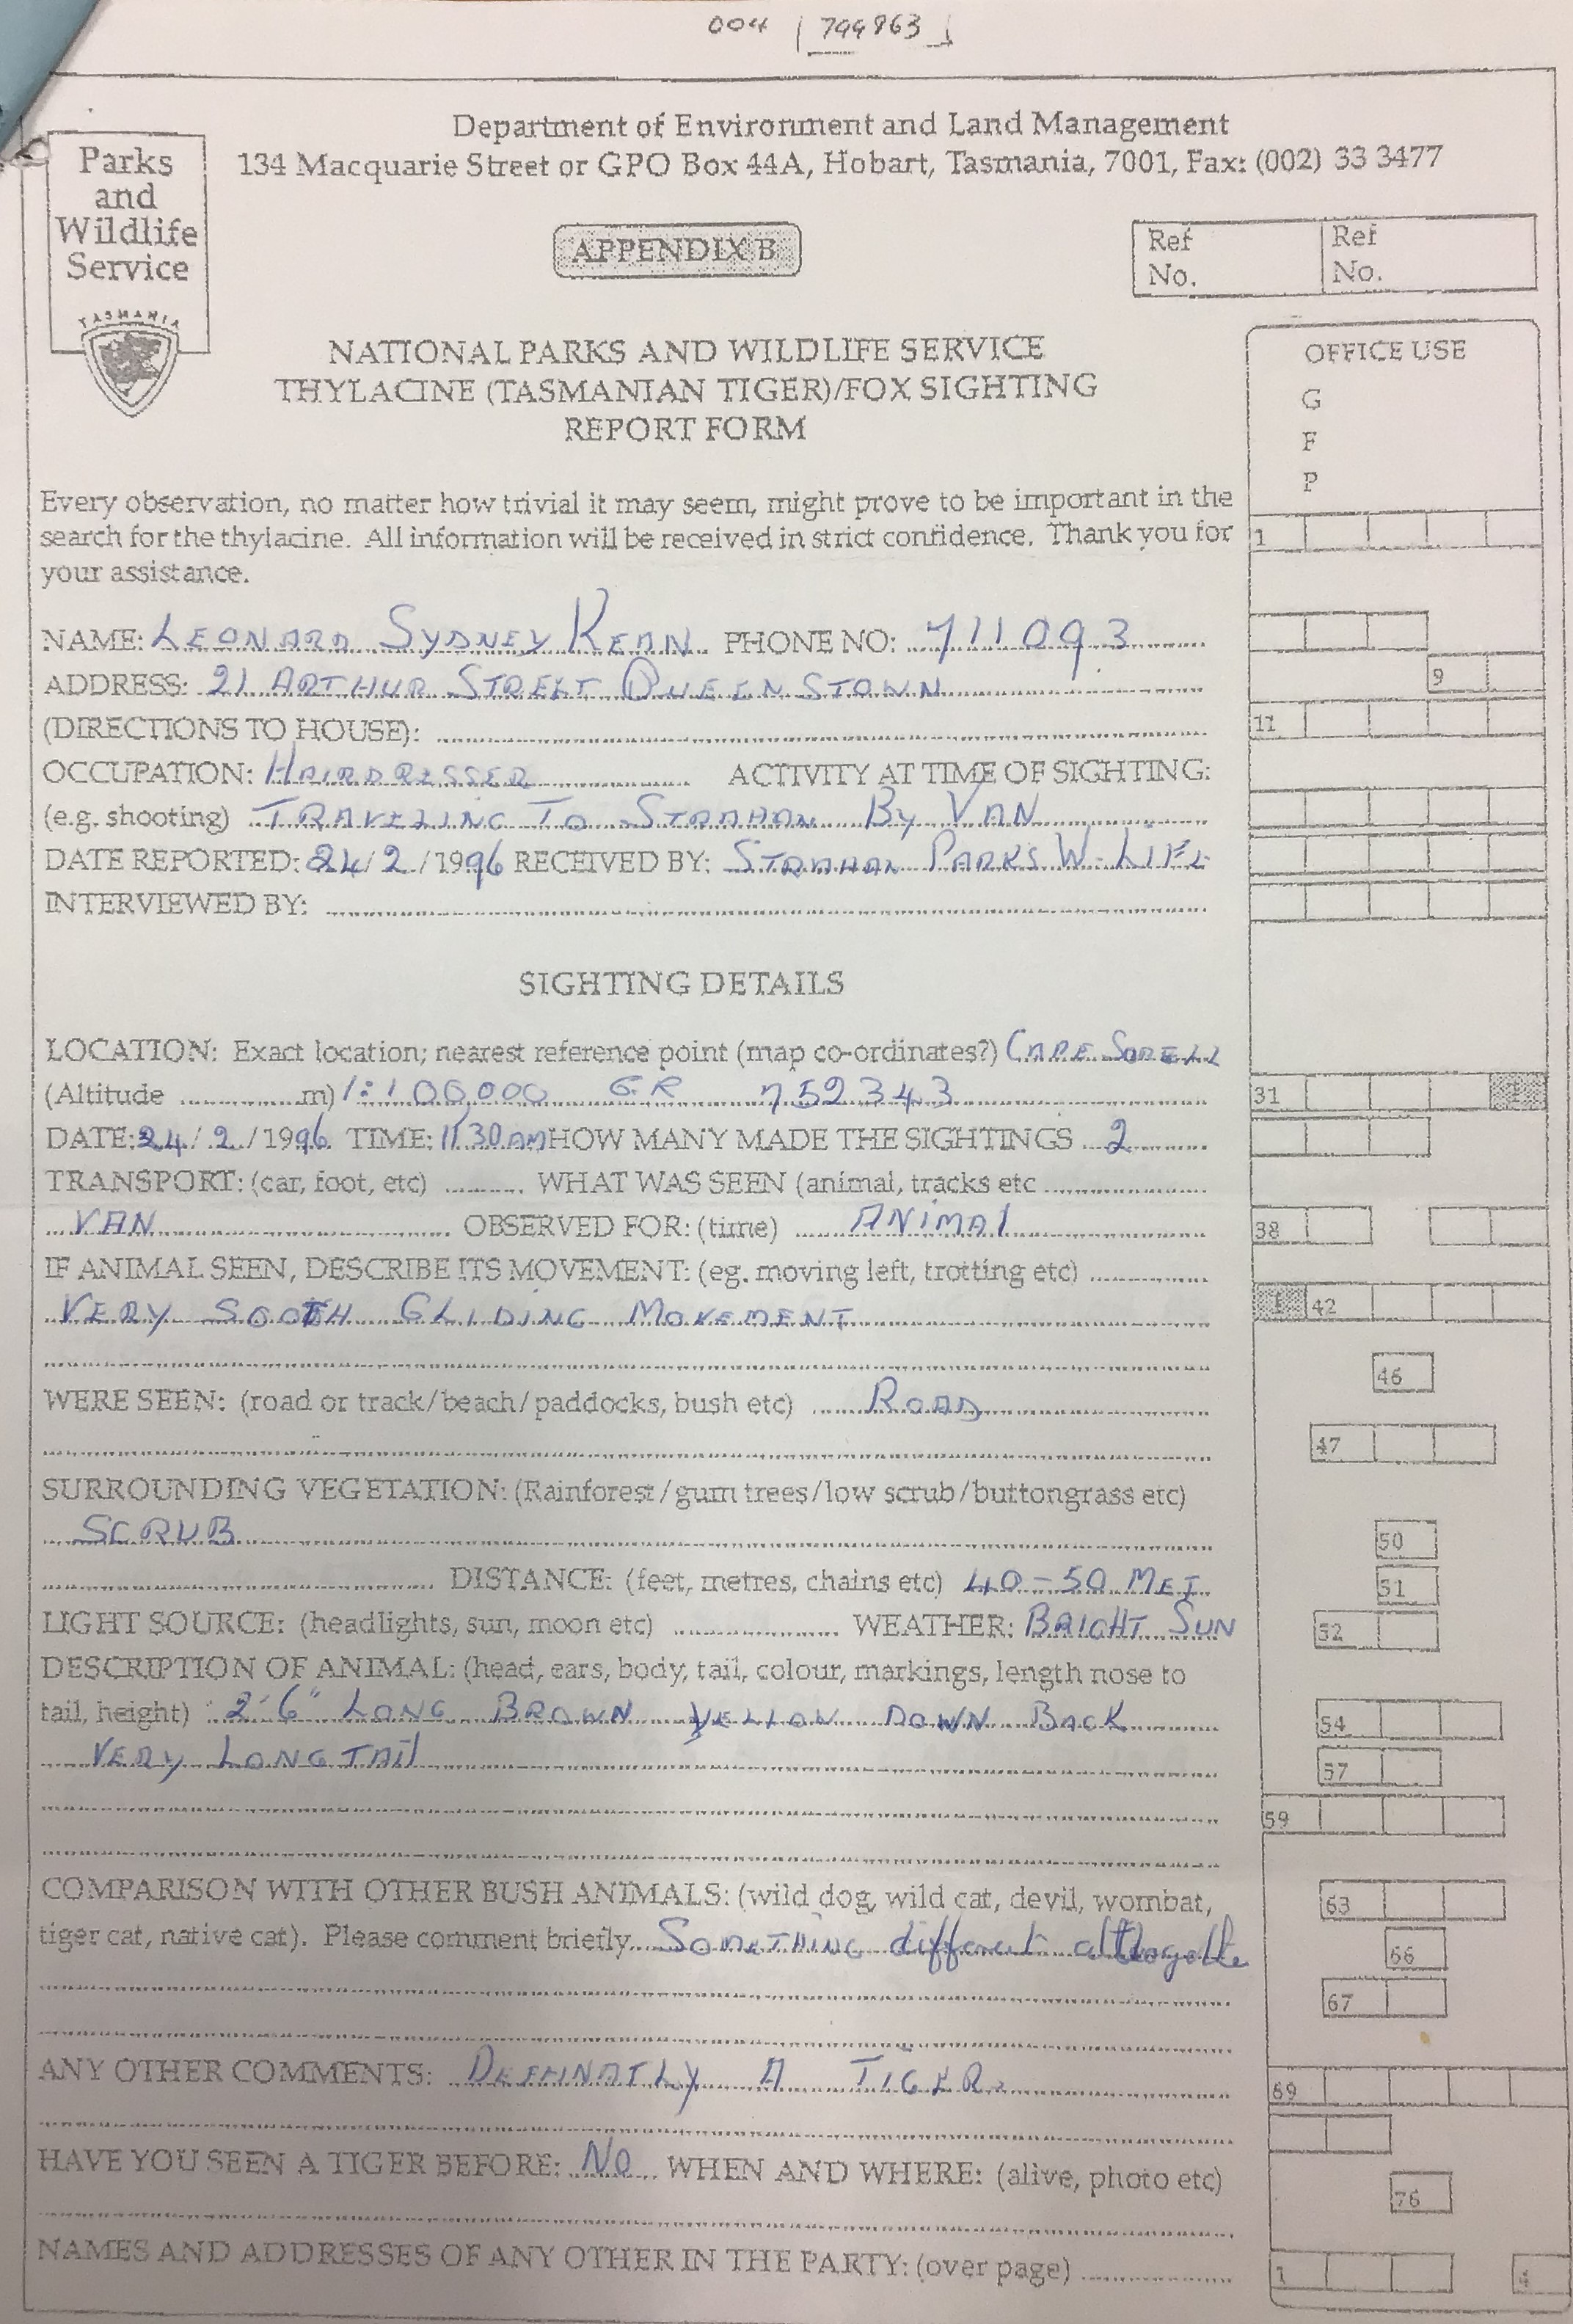 004 | 799863
Department of Environment and Land Management
134 Macquarie Street or GPO Box 44A, Hobart, Tasmania, 7001, Fax: (002) 33 3477
Parks
and
Wildlife
Service
TASMANIA
APPENDIX B
Ref No. Ref No.
NATIONAL PARKS AND WILDLIFE SERVICE
THYLACINE (TASMANIAN TIGER)/FOX SIGHTING
REPORT FORM
OFFICE USE
G
F
P
Every observation, no matter how trivial it may seem, might prove to be important in the
search for the thylacine. All information will be received in strict confidence. Thank you for
your assistance.
1
NAME: LEONARD SYDNEY KEAN PHONE NO: 711093
ADDRESS: 21 ARTHUR STREET QUEENSTOWN
9
(DIRECTIONS TO HOUSE):
11
OCCUPATION: HAIRDRESSER ACTIVITY AT TIME OF SIGHTING:
(e.g. shooting) TRAVELING TO STRAHAN BY VAN
DATE REPORTED: 24/2/1996 RECEIVED BY: STRAHAN PARKS W-LIFE
INTERVIEWED BY:
SIGHTING DETAILS
LOCATION: Exact location; nearest reference point (map co-ordinates?) CAPE SORELL
(Altitude m) 1:100,000 GR 752343
31 I
DATE: 24/2/1996 TIME: 11.30AM HOW MANY MADE THE SIGHTINGS 2
TRANSPORT: (car, foot, etc) WHAT WAS SEEN (animal, tracks etc
VAN OBSERVED FOR: (time) ANIMAL
38
IF ANIMAL SEEN, DESCRIBE ITS MOVEMENT: (eg. moving left, trotting etc)
VERY SOOTH GLIDING MOVEMENT
42
46
WERE SEEN: (road or track/beach/paddocks, bush etc) ROAD
47
SURROUNDING VEGETATION: (Rainforest/gum trees/low scrub/buttongrass etc)
SCRUB
50
DISTANCE: (feet, metres, chains etc) 40-50 MET
51
LIGHT SOURCE: (headlights, sun, moon etc) WEATHER: BRIGHT SUN
52
DESCRIPTION OF ANIMAL: (head, ears, body, tail, colour, markings, length nose to
tail, height) 2'6" LONG BROWN YELLOW DOWN BACK
54
VERY LONG TAIL
57
59
COMPARISON WITH OTHER BUSH ANIMALS: (wild dog, wild cat, devil, wombat,
63
tiger cat, native cat). Please comment briefly SOMETHING different
66
67
ANY OTHER COMMENTS: DEFINATLY A TIGER.
69
HAVE YOU SEEN A TIGER BEFORE: NO WHEN AND WHERE: (alive, photo etc)
76
NAMES AND ADDRESSES OF ANY OTHER IN THE PARTY: (over page)
1 4